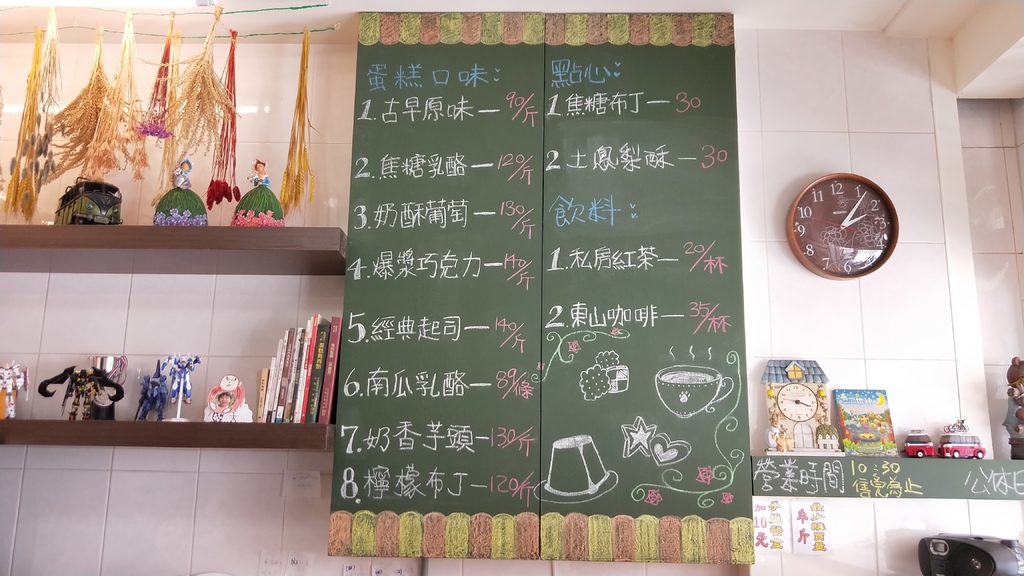 蛋糕口味:
1.古早原味—90/斤
2.焦糖乳酪—120/斤
3.奶酥葡萄—130/斤
4.爆漿巧克力—140/斤
5.經典起司—140/斤
6.南瓜乳酪—89/條
7.奶香芋頭—130/斤
8.檸檬布丁—120/斤
點心:
1焦糖布丁—30
2土鳳梨酥—30
飲料:
1.私房紅茶—20/杯
2.東山咖啡—35/杯
12 1 2 3 4 5 6 7 8 9 10 11
營業時間 10:30
售完為止
公休日
加10元